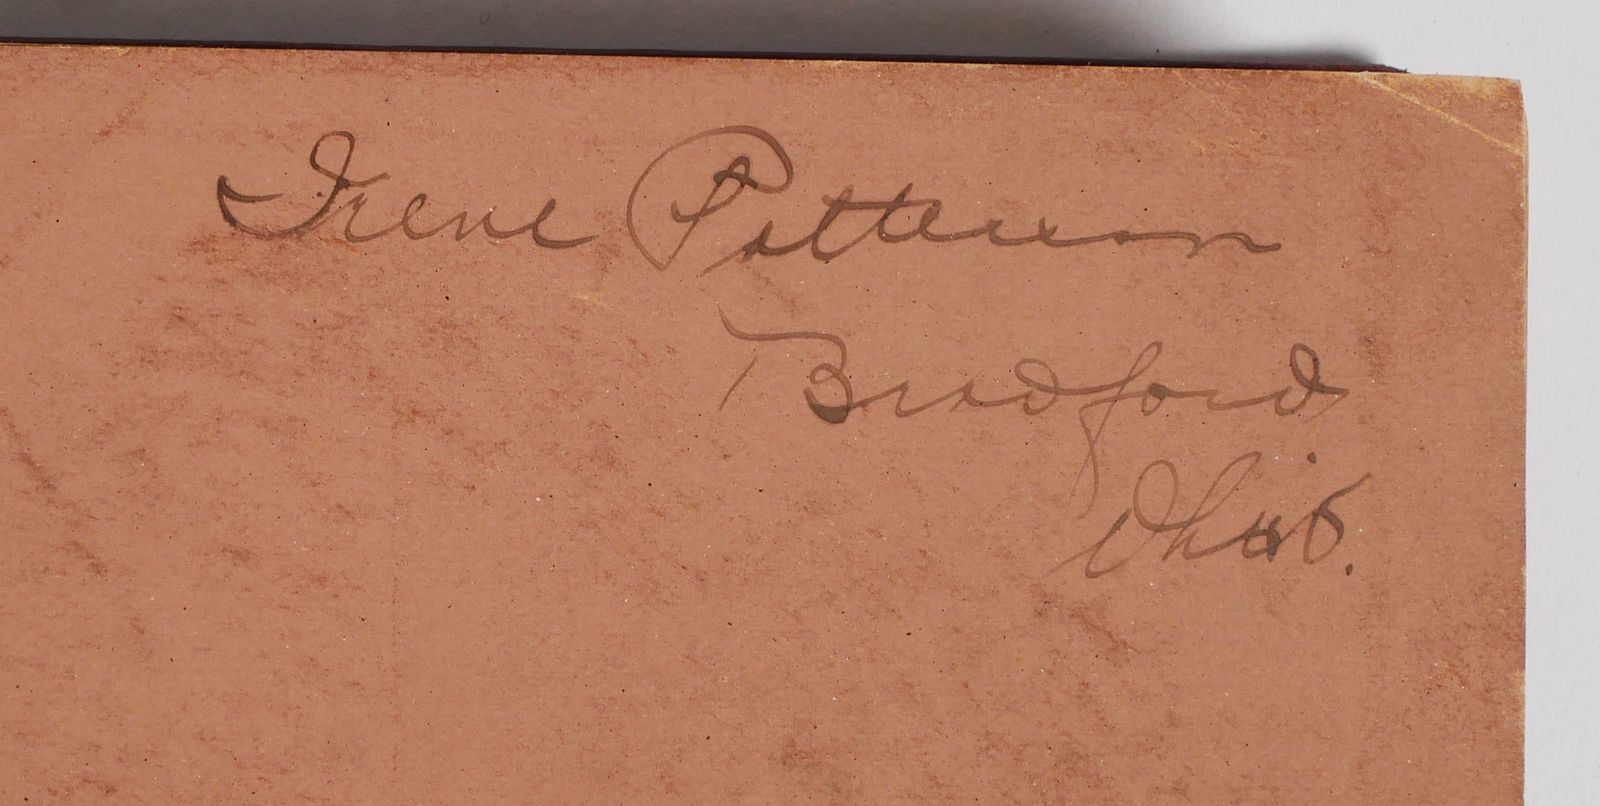 Irene Patterson
Bradford
Ohio.